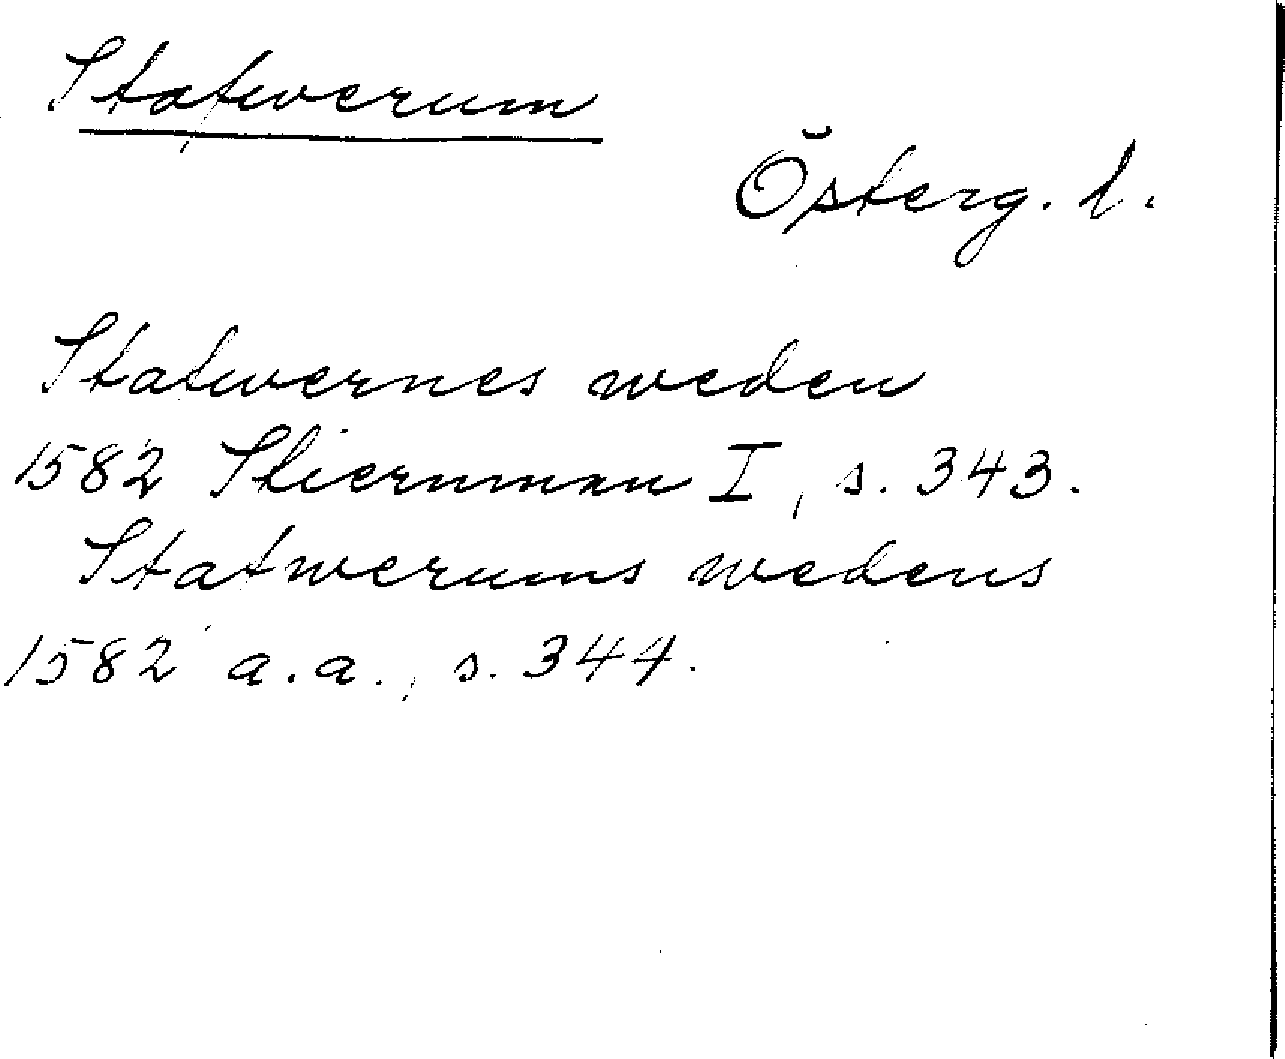 Statwerum
Österg. l.
Statwernes weden
1582 Stiernman I, s. 343.
Statwerums wedens
1582 a.a., s. 344.